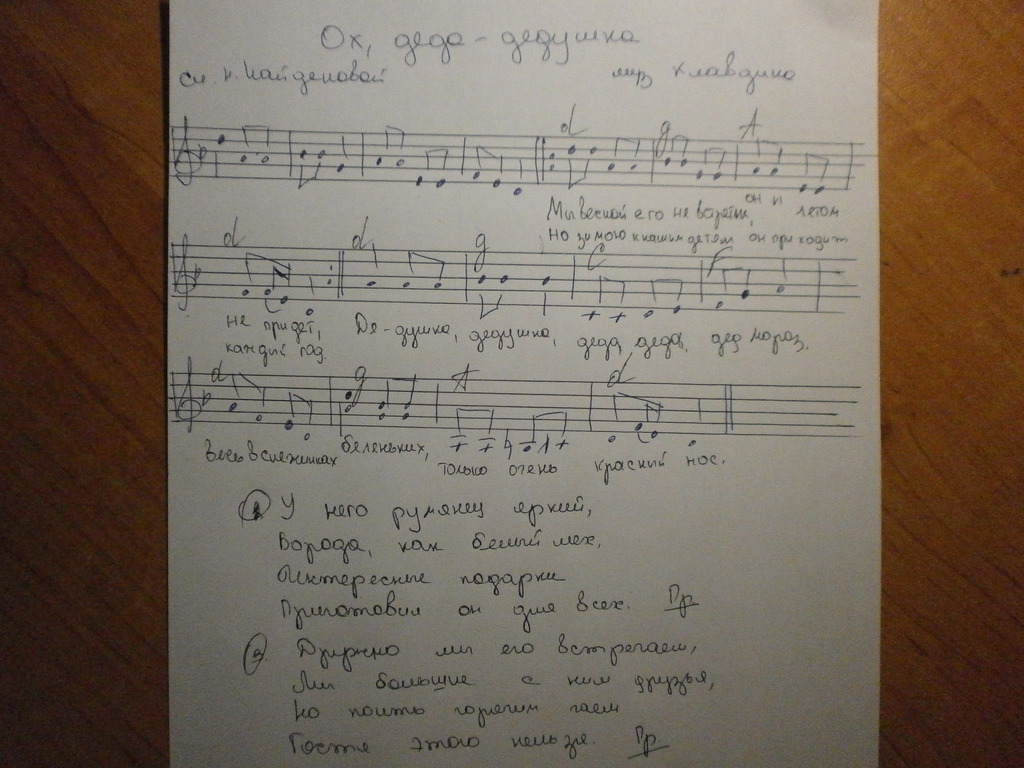 Ох, деда-дедушка
сл. Н. Найденовой
муз Клавдина
d g A
Мы весной его не встретим, он и летом
Но зимою к нашим детям он приходит
d d g C F
не придёт, Де-душка, дедушка, деда, деда, дед мороз,
каждый год.
d g A d
Весь в снежинках беленьких, только очень красный нос.
У него румянец яркий,
Борода, как белый мех,
Интересные подарки
Приготовил он для всех. Пр
3. Дружно мы его встречаем,
Мы большие с ним друзья,
Но поить горячим чаем
Гостя этого нельзя. Пр.